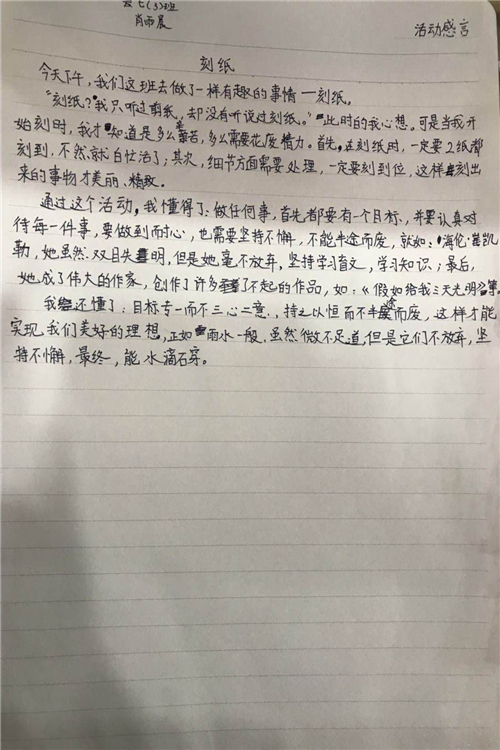 七(3)班
肖雨晨
活动感言
刻纸
今天下午，我们这班去做了一样有趣的事情—刻纸。
"刻纸？我只听过剪纸，却没有听说过刻纸。"此时的我心想。可是当我开
始刻时，我才知道是多么辛苦，多么需要花废精力。首先，在刻纸时，一定要2纸都
刻到，不然就白忙活了；其次，细节方面需要处理，一定要刻到位，这样刻出
来的事物才美丽、精致。
通过这个活动，我懂得了：做任何事，首先都要有一个目标，并要认真对
待每一件事，要做到耐心，也需要坚持不懈，不能半途而废，就如：海伦·凯
勒，她虽然双目失明，但是她毫不放弃，坚持学习盲文，学习知识；最后，
她成了伟大的作家，创作了许多了不起的作品，如：《假如给我三天光明》等。
我还懂了：目标专一而不三心二意，持之以恒而不半途而废，这样才能
实现我们美好的理想，正如雨水一般，虽然微不足道，但是它们不放弃，坚
持不懈，最终，能水滴石穿。